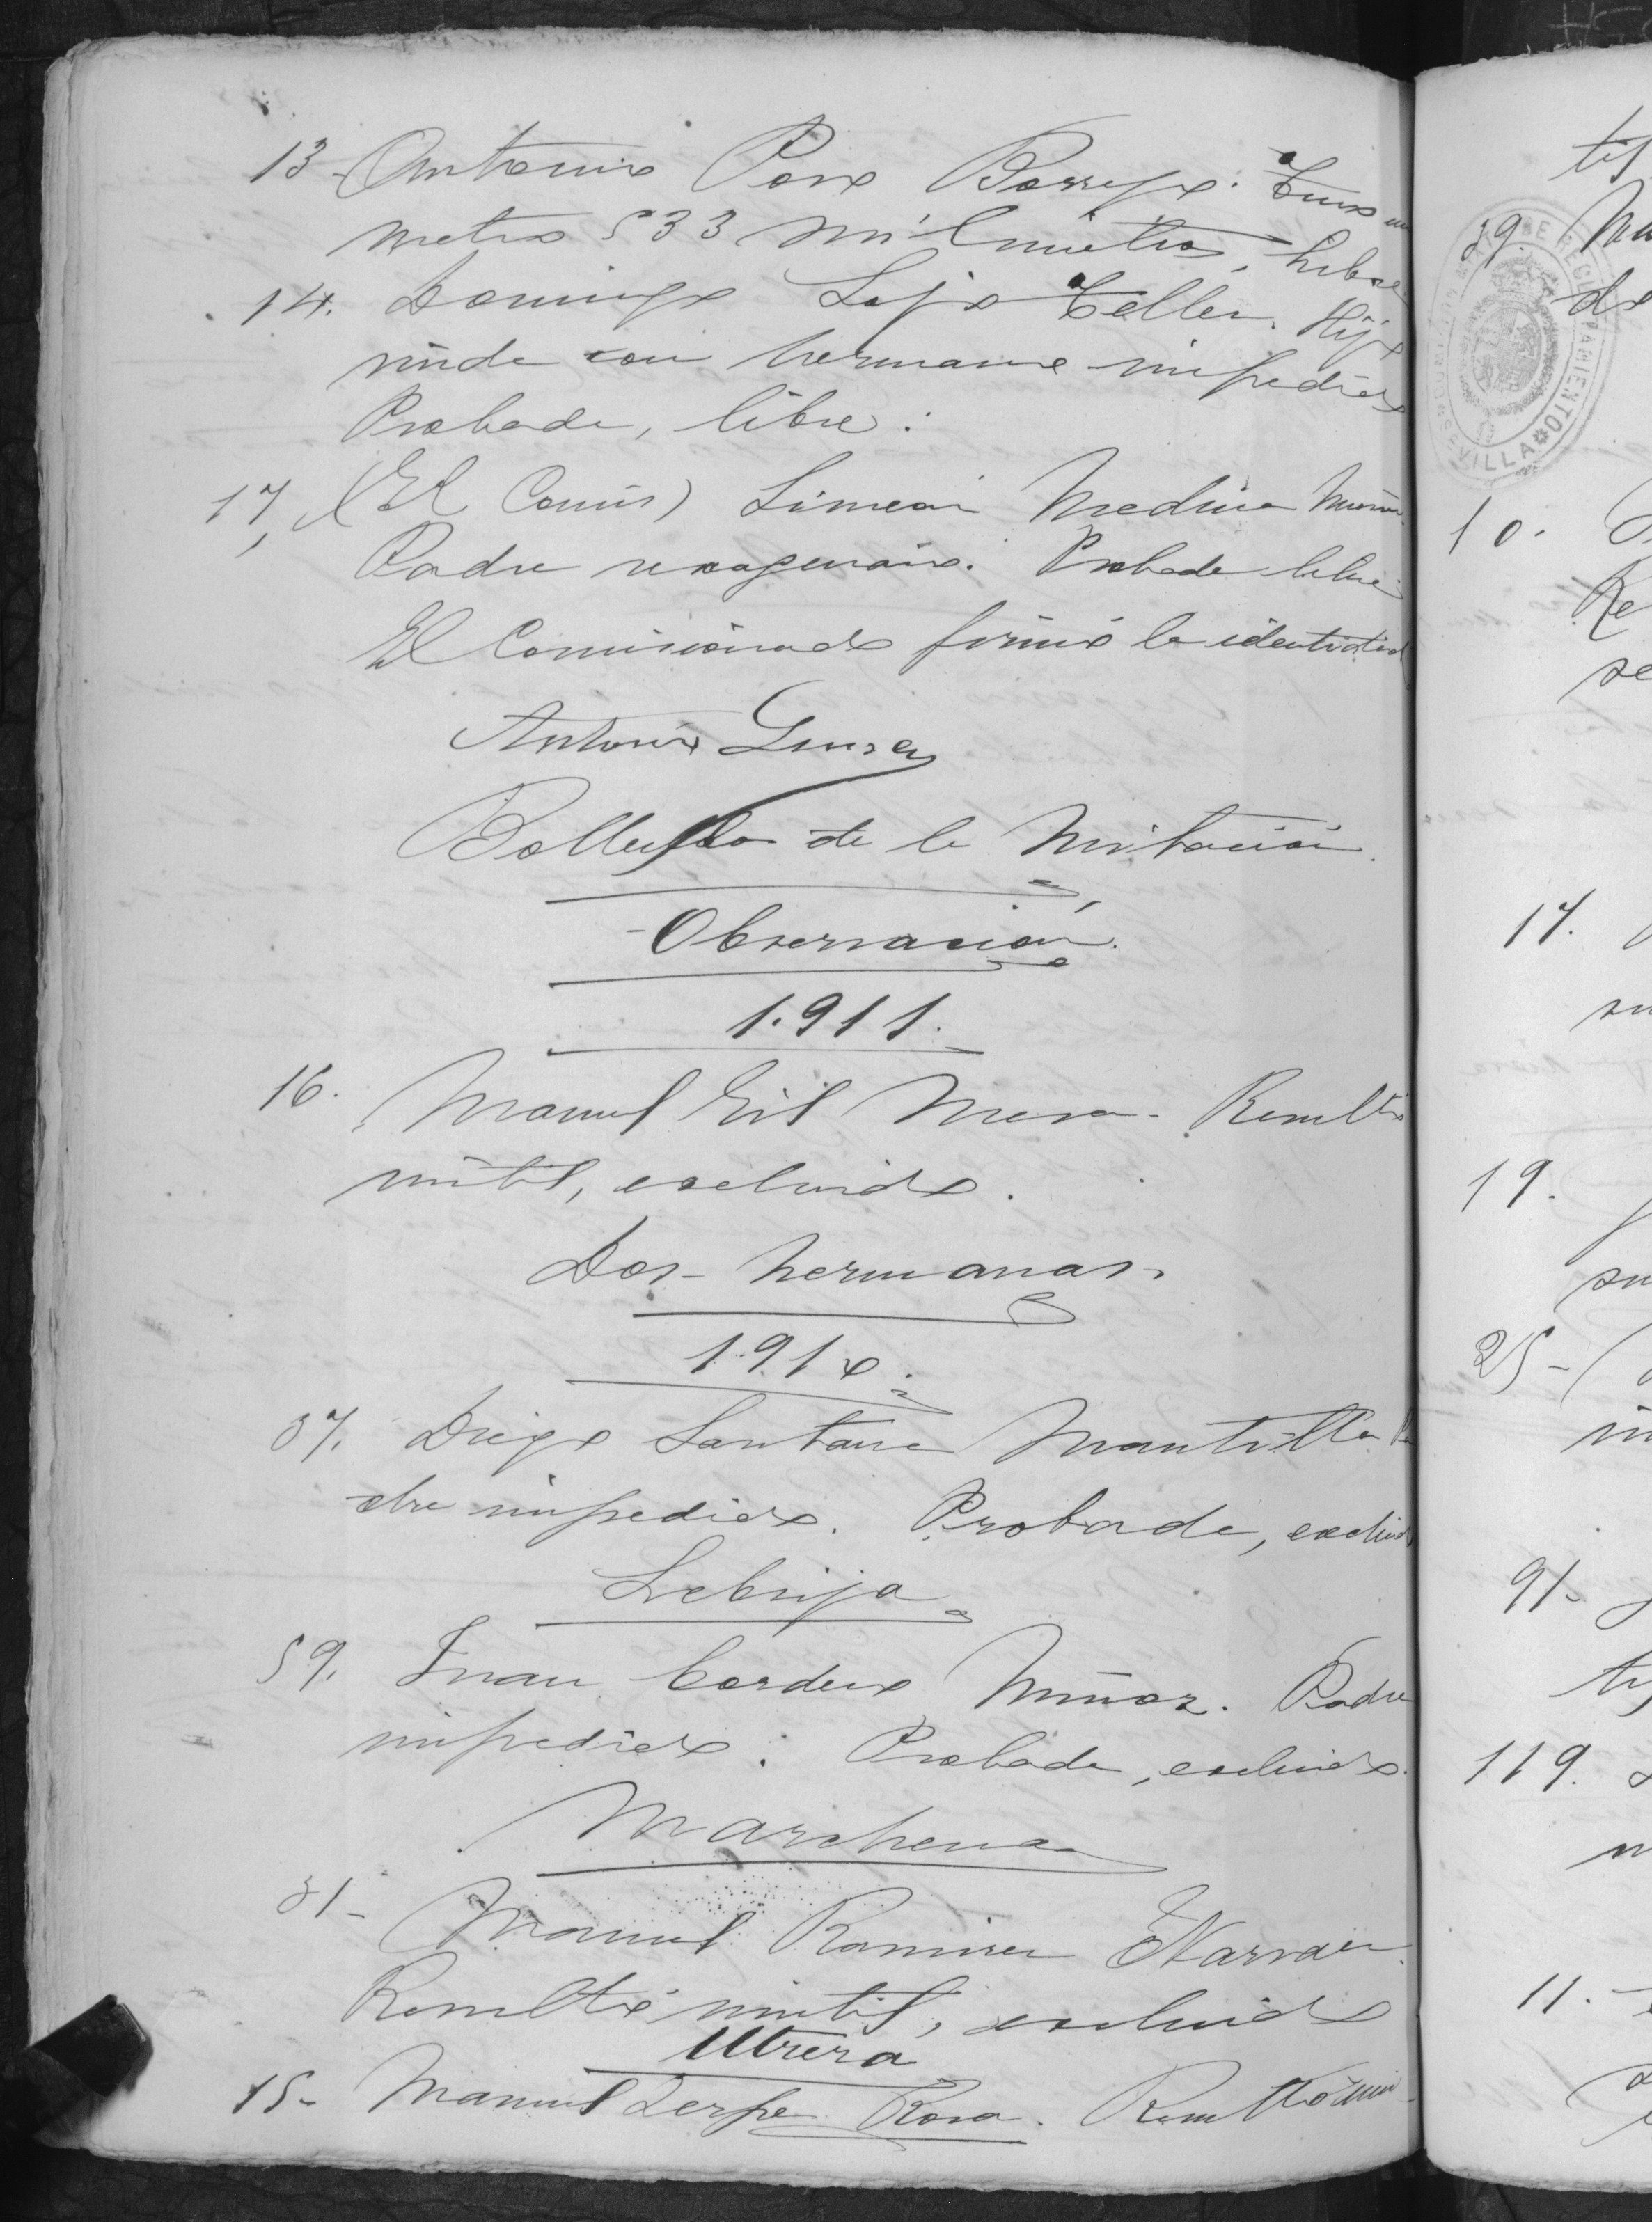 13 - Antonio Pose Borrego. Tuvo un
metro 533 milimetros, Libre
14. Domingo Lajo Teller. Hijo
viuda con hermano impedido
Probada, libre.
17, (El Comis) Simeon Medina Muñoz
Padre sexagenario. Probada libre
El Comisionado firmó la identidad
Antonio
Bollullos de la Mitacion.
Observacion.
1.911.
16. Manuel Gil Mesa. Resultó
inútil, excluido.
Dos-hermanas.
1.910.
37. Diego Santana Mantilla Pa
dre impedido. Probada, excluido
Lebrija
59. Juan Cordero Muñoz. Padre
impedido. Probada, excluido.
Marchena
31 - Manuel Ramirez Narvaez.
Resultó inutil, excluido
Utrera
15 - Manuel Serpe Rosa. Resultó inu
29.
de
SEVILLA
10.
Re
se
17.
su
19.
su
25 -
in
91 -
119.
11.